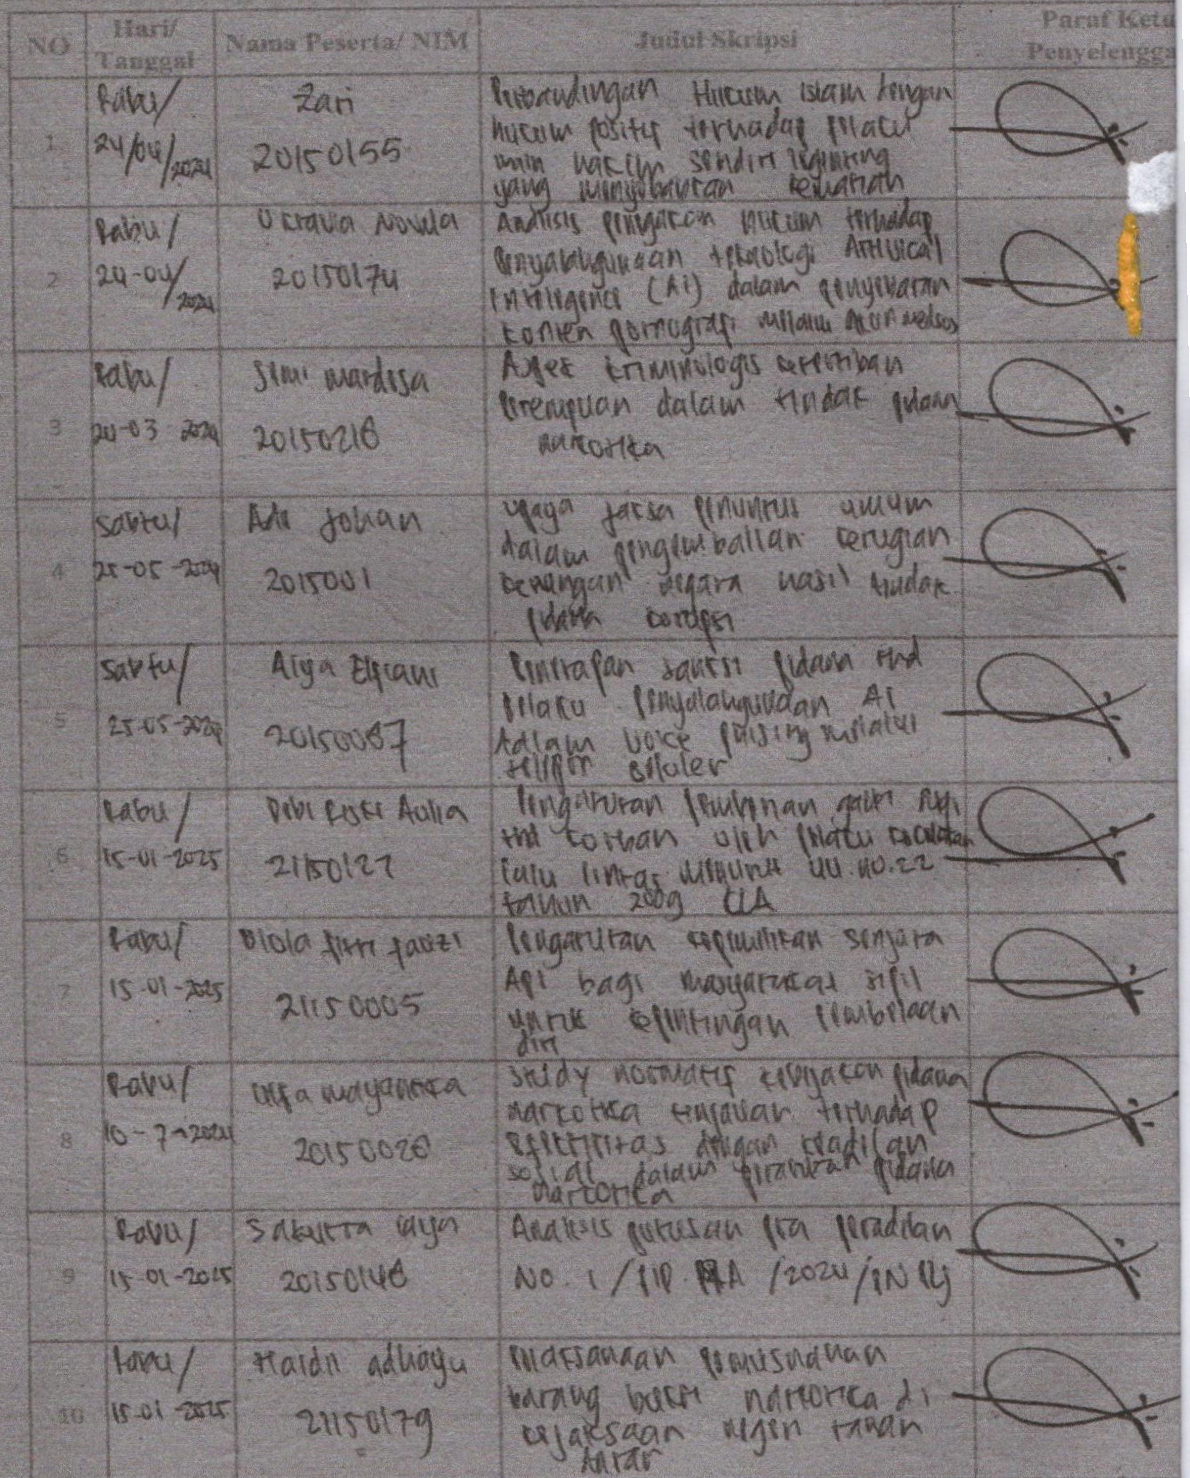 NO
Hari/
Tanggal
Nama Peserta/ NIM
Judul Skripsi
Paraf Ketu
Penyelengga
1
Rabu/
24/04/2024
Zari
20150155
Perbandingan Hukum islam dengan
hukum positif terhadap pelaku
main hakim sendiri
yang menyebabkan kematian
2
Rabu/
24-04/2024
Oktavia Novela
20150174
Analisis penegakan hukum terhadap
penyalahgunaan teknologi Artificial
Intelegence (AI) dalam penyebaran
konten pornografi melalui akun medsos
3
Rabu/
20-03 2024
Silmi mardisa
20150218
Aspek kriminologis keterlibatan
perempuan dalam tindak pidana
narkotika
4
Sabtu/
25-05-2024
Ade Johan
2015001
upaya jaksa penuntut umum
dalam pengembalian kerugian
keuangan negara hasil tindak
pidana korupsi
5
Sabtu/
25-05-2024
Aiga
20150087
Penerapan sanksi pidana thd
pelaku penyalahgunaan AI
dalam voice phising melalui
telepon seluler
6
Rabu/
15-01-2025
Aulia
21150127
Pengaturan pemberian ganti rugi
thd korban oleh pelaku kecelakaan
lalu lintas menurut UU.NO.22
tahun 2009 LLA
7
Rabu/
15-01-2025
Diola fitri fauzi
21150005
Pengaturan kepemilikan senjata
Api bagi masyarakat sipil
untuk kepentingan pembelaan
diri
8
Rabu/
10-7-2024
20150028
Study normatif kebijakan pidana
narkotika tinjauan terhadap
efektifitas dengan keadilan
sosial dalam pidana
narkotika
9
Rabu/
15-01-2025
20150148
Analisis putusan pra peradilan
NO. 1/PID.PRA/2024/PN
10
Rabu/
15-01-2025
21150179
pelaksanaan pemusnahan
barang bukti narkotika di
kejaksaan negeri tanah
datar